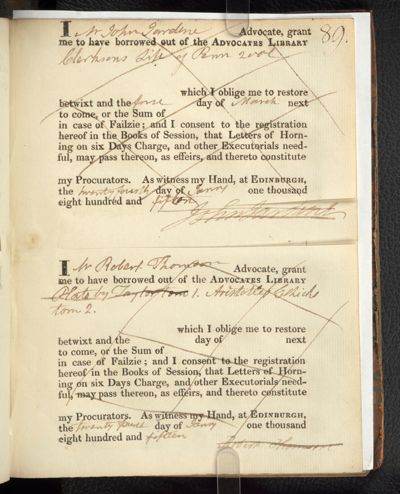 I Mr John Jardine Advocate, grant
89.
me to have borrowed out of the ADVOCATES LIBRARY
Clarksons Life of Penn 2 vol
which I oblige me to restore
betwixt and the first day of March next
to come, or the Sum of
in case of Failzie; and I consent to the registration
hereof in the Books of Session, that Letters of Horn-
ing on six Days Charge, and other Executorials need-
ful, may pass thereon, as effeirs, and thereto constitute
my Procurators. As witness my Hand, at EDINBURGH,
the twenty fourth day of Janry one thousand
eight hundred and fifteen
John Jardine
I Mr Robert Thomson Advocate, grant
me to have borrowed out of the ADVOCATES LIBRARY
Plato by Taylor tom 1. Aristotles Ethicks
tom 2.
which I oblige me to restore
betwixt and the day of next
to come, or the Sum of
in case of Failzie; and I consent to the registration
hereof in the Books of Session, that Letters of Horn-
ing on six Days Charge, and other Executorials need-
ful, may pass thereon, as effeirs, and thereto constitute
my Procurators. As witness my Hand, at EDINBURGH,
the twenty fourth day of Janry one thousand
eight hundred and fifteen
Robert Thomson